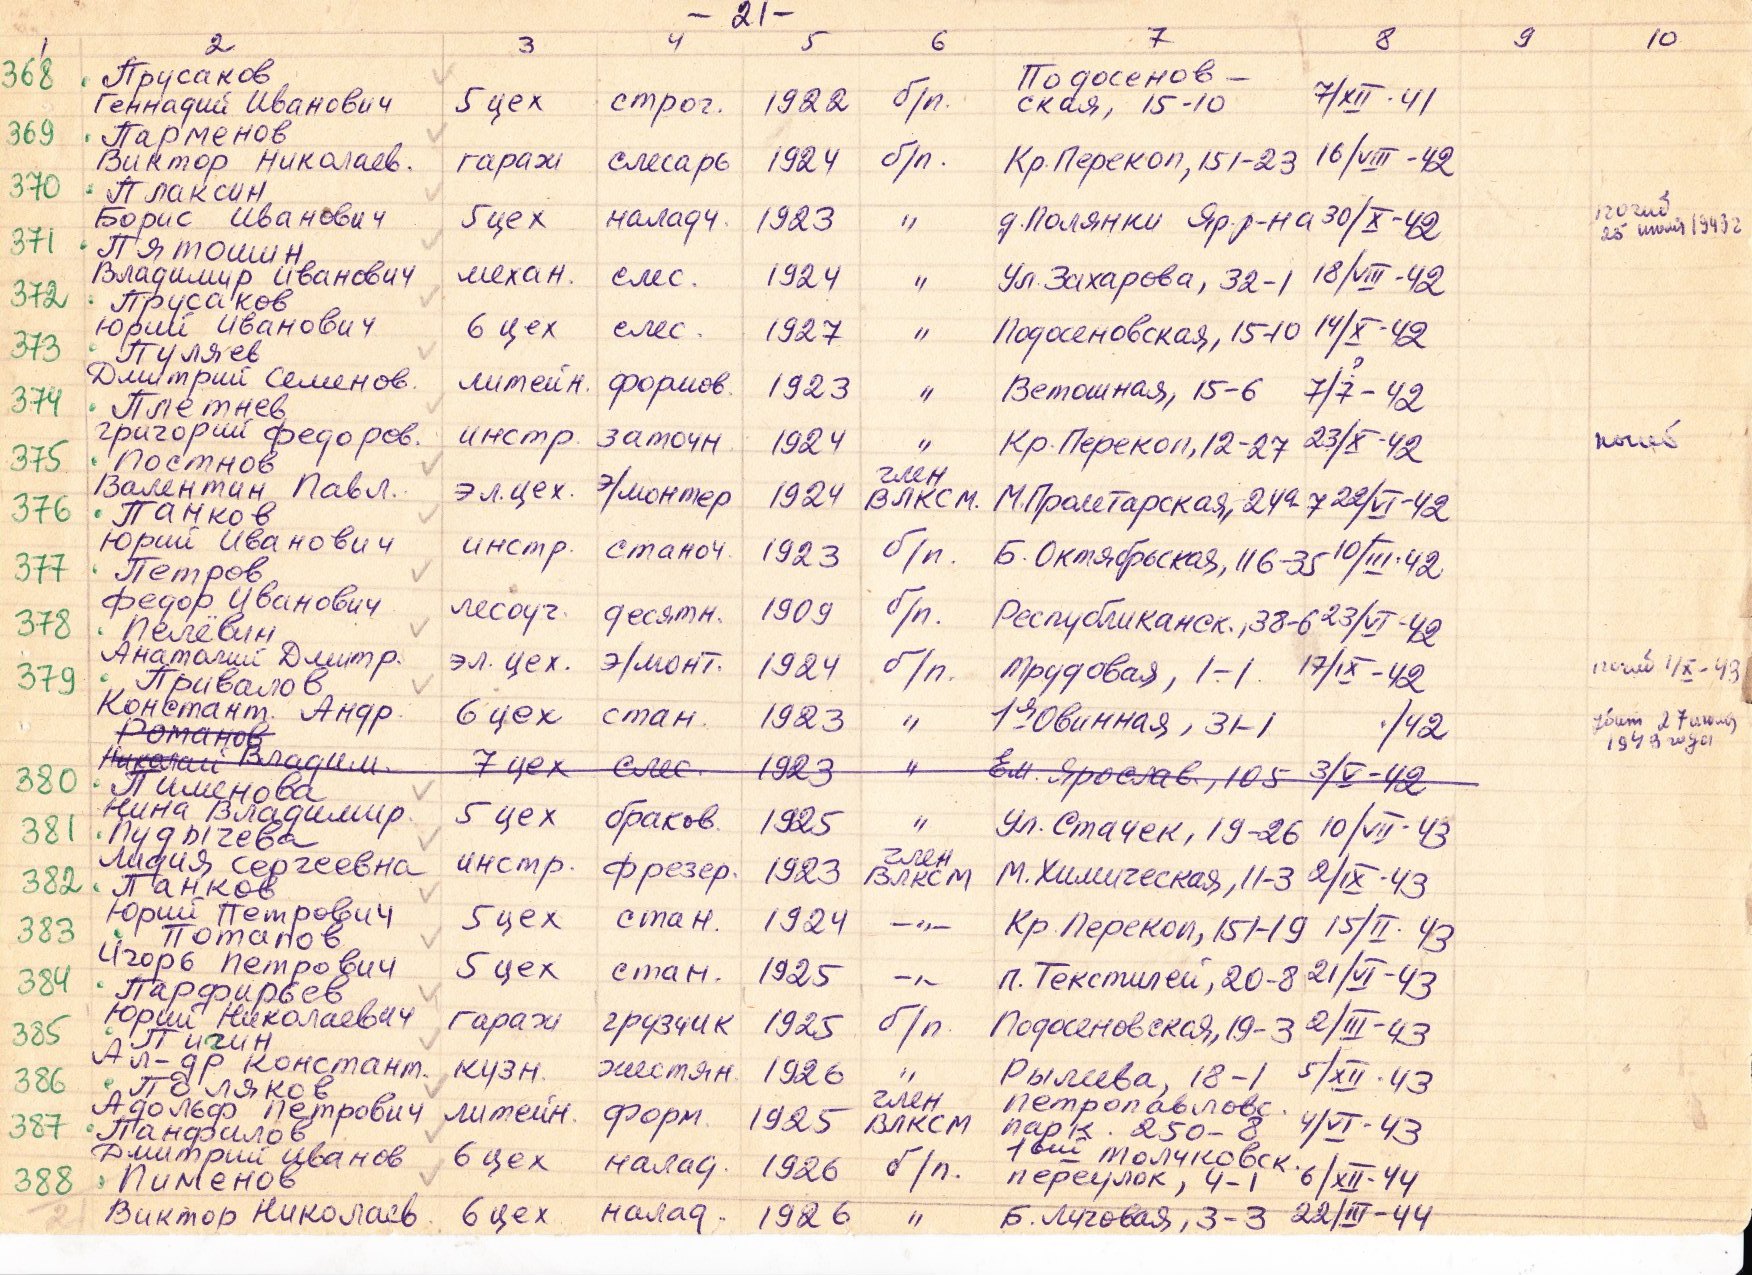 - 21 -
1 2 3 4 5 6 7 8 9 10
368 Прусаков Подосенов-
Геннадий Иванович 5 цех строг. 1922 б/п. ская, 15-10 7/XII-41
369 Парменов
Виктор Николаев. гараж слесарь 1924 б/п. Кр. Перекоп, 151-23 16/VIII-42
370 Плаксин погиб
Борис Иванович 5 цех наладч. 1923 " д. Полянки Яр. р-на 30/X-42 25 июля 1943 г
371 Пятошин
Владимир Иванович механ. слес. 1924 " Ул. Захарова, 32-1 18/VIII-42
372 Прусаков
Юрий Иванович 6 цех слес. 1927 " Подосеновская, 15-10 14/X-42
373 Пуляев ?
Дмитрий Семенов. литейн. формов. 1923 " Ветошная, 15-6 7/7-42
374 Плетнев
Григорий Федоров. инстр. заточн. 1924 " Кр. Перекоп, 12-27 23/X-42 погиб
375 Постнов член
Валентин Павл. эл. цех. э/монтер 1924 ВЛКСМ. М. Пролетарская, 24а-7 22/VI-42
376 Панков
Юрий Иванович инстр. станоч. 1923 б/п. Б. Октябрьская, 116-35 10/III-42
377 Петров
Федор Иванович лесоуч. десятн. 1909 б/п. Республиканск., 38-6 23/VI-42
378 Пелёвин
Анатолий Дмитр. эл. цех. э/монт. 1924 б/п. Трудовая, 1-1 17/IX-42 погиб 1/X-43
379 Привалов
Констант. Андр. 6 цех стан. 1923 " 1я Овинная, 31-1 ./42 убит 27 июля
Романов 1943 года
Николай Владим. 7 цех слес. 1923 " Ем. Ярослав., 105 3/V-42
380 Пименова
Нина Владимир. 5 цех браков. 1925 " Ул. Стачек, 19-26 10/VII-43
381 Пудычева член
Лидия Сергеевна инстр. фрезер. 1923 ВЛКСМ М. Химическая, 11-3 2/IX-43
382 Панков
Юрий Петрович 5 цех стан. 1924 -"- Кр. Перекоп, 151-19 15/II-43
383 Потапов
Игорь Петрович 5 цех стан. 1925 -"- п. Текстилей, 20-8 21/VI-43
384 Парфирьев
Юрий Николаевич гараж грузчик 1925 б/п. Подосеновская, 19-3 2/III-43
385 Пигин
Ал-др Констант. кузн. жестян. 1926 " Рылеева, 18-1 5/XII-43
386 Поляков член Петропавловс.
Адольф Петрович литейн. форм. 1925 ВЛКСМ парк. 250-8 4/VI-43
387 Панфилов 1ый Толчковск.
Дмитрий Иванов 6 цех налад. 1926 б/п. переулок, 4-1 6/XII-44
388 Пименов
Виктор Николаев. 6 цех налад. 1926 " Б. Луговая, 3-3 22/III-44